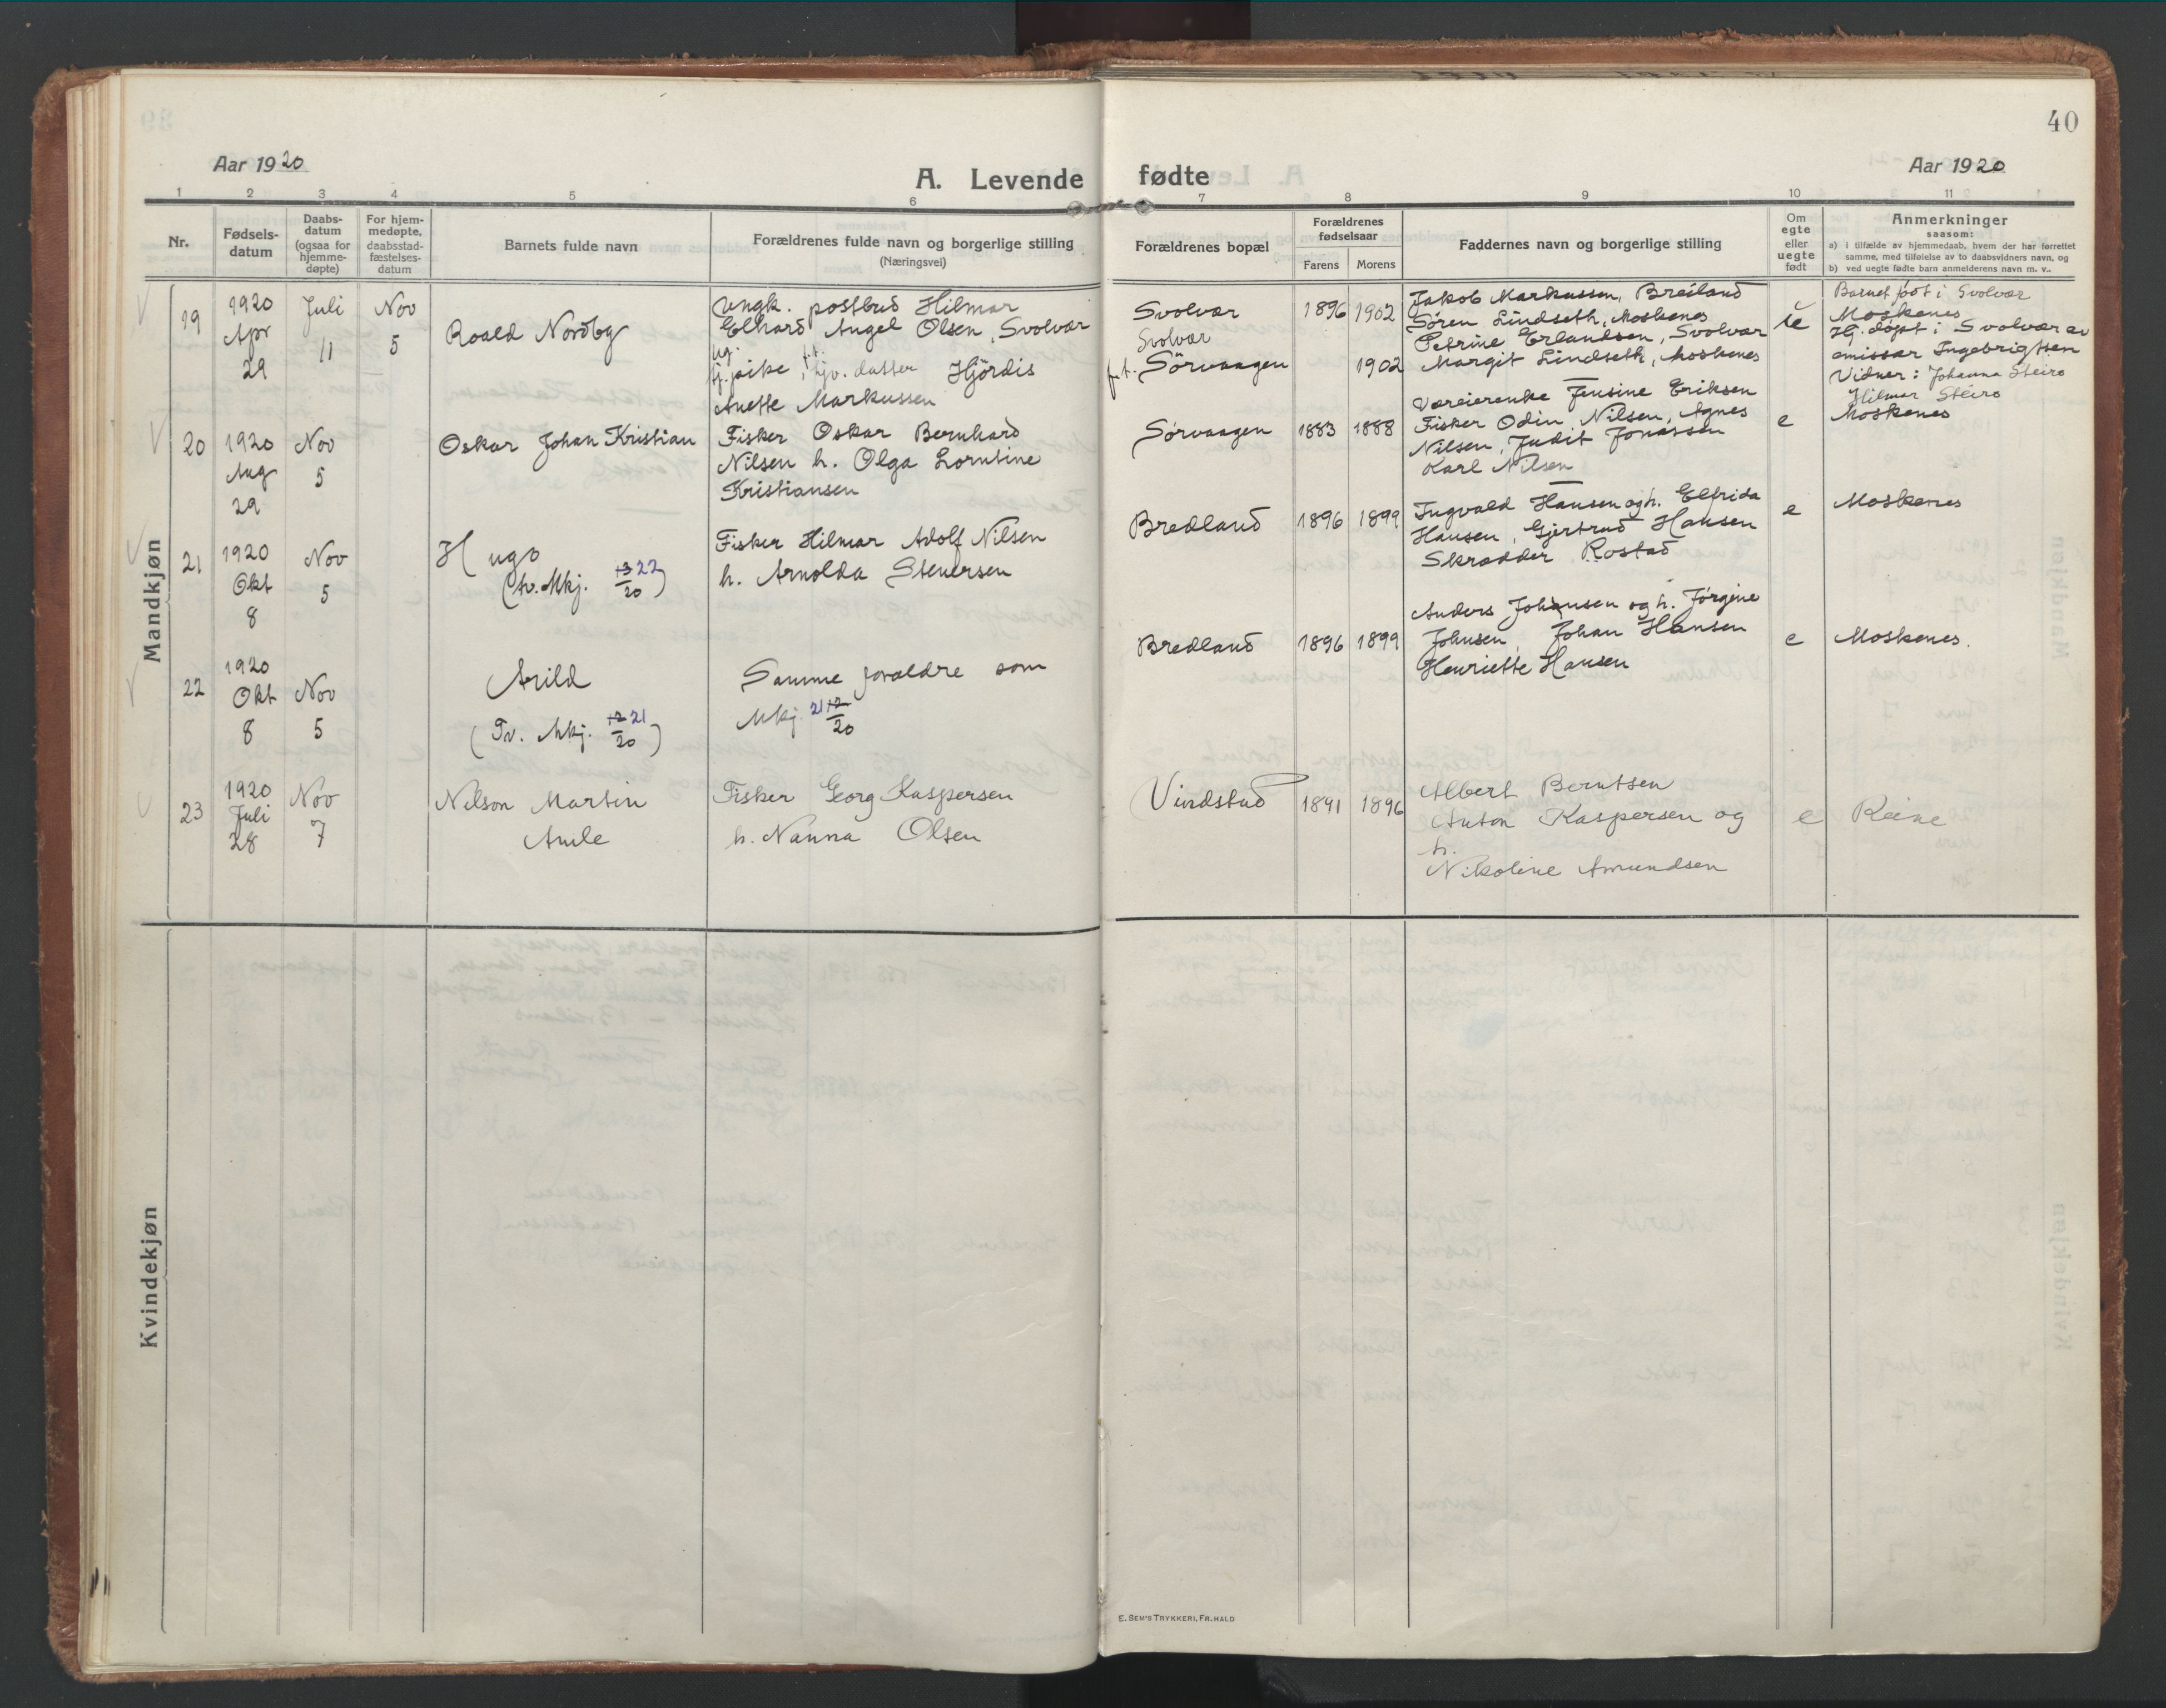 40
Aar 1920
A. Levende fødte
Aar 1920
1 2 3 4 5 6 7 8 9 10 11
Nr.
Fødsels-
datum
Daabs-
datum
(ogsaa for
hjemme-
døpte)
For hjem-
medøpte,
daabsstad-
fæstelses-
datum
Barnets fulde navn
Forældrenes fulde navn og borgerlige stilling
(Næringsvei)
Forældrenes bopæl
Forældrenes
fødselsaar
Farens
Morens
Faddernes navn og borgerlige stilling
Om
egte
eller
uegte
født
Anmerkninger
saasom:
a) i tilfælde av hjemmedaab, hvem der har forrettet
samme, med tilføielse av to daabsvidners navn, og
b) ved uegte fødte barn anmelderens navn m. v..
Mandkjøn
19
1920
Apr
29
Juli
11
Nov
5
Roald Nordby
Ungk. postbud Hilmar
Elhard Angel Olsen, Svolvær
ug.
pike, gv. datter Hjördis
Anette Markussen
Svolvær
Svolvær
f.t. Sörvaagen
1896 1902
1902
Jakob Markussen, Breiland
Søren Lindseth, Moskenes
Petrine Erlandsen, Svolvær
Margit Lindseth, Moskenes
ue
Barnet født i Svolvær
Moskenes
Hj. døpt i Svolvær av
emissær Ingebrigtsen
Vidner: Johanna Steiro
Hilmar Steiro
20
1920
Aug
29
Nov
5
Oskar Johan Kristian
Fisker Oskar Bernhard
Nilsen h. Olga Lorntine
Kristiansen
Sörvaagen
1883 1888
Væreierenke Jensine Eriksen
Fisker Odin Nilsen, Agnes
Nilsen, Judit Jonassen
Karl Nilsen
e
Moskenes
21
1920
Okt
8
Nov
5
Hugo
(tv. Mkj. 13 22/20)
Fisker Hilmar Adolf Nilsen
h. Arnolda Stenersen
Bredland
1896 1899
Ingvald Hansen og h. Elfrida
Hansen, Gjertrud Hansen
Skrædder Rostad
e
Moskenes
22
1920
Okt
8
Nov
5
Arild
(Tv. Mkj. 12 21/20)
Samme forældre som
Mkj. 21 12/20
Bredland
1896 1899
Anders Johansen og h. Jørgine
Johnsen, Johan Hansen
Henriette Hansen
e
Moskenes.
23
1920
Juli
28
Nov
7
Nilson Martin
Amle
Fisker Georg Kaspersen
h. Nanna Olsen
Vindstad
1891 1896
Albert Berntsen
Anton Kaspersen og
h.
Nikoline Amundsen
e
Reine
Kvindekjøn
E. SEM'S TRYKKERI, FR. HALD